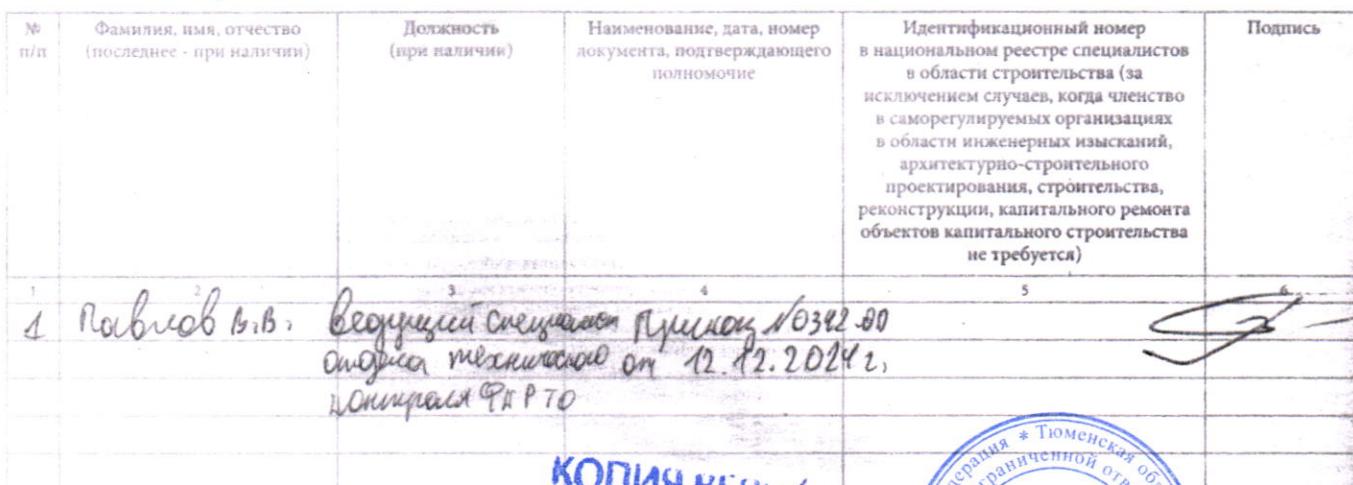 № п/п
Фамилия, имя, отчество
(последнее - при наличии)
Должность
(при наличии)
Наименование, дата, номер
документа, подтверждающего
полномочие
Идентификационный номер
в национальном реестре специалистов
в области строительства (за
исключением случаев, когда членство
в саморегулируемых организациях
в области инженерных изысканий,
архитектурно-строительного
проектирования, строительства,
реконструкции, капитального ремонта
объектов капитального строительства
не требуется)
Подпись
1 2 3 4 5 6
1 Павлов В.В. ведущий специалист Приказ №0392
отдела технического от 12.12.2024 г.
контроля ФКР ТО
КОПИЯ
* Тюменская
ограниченной